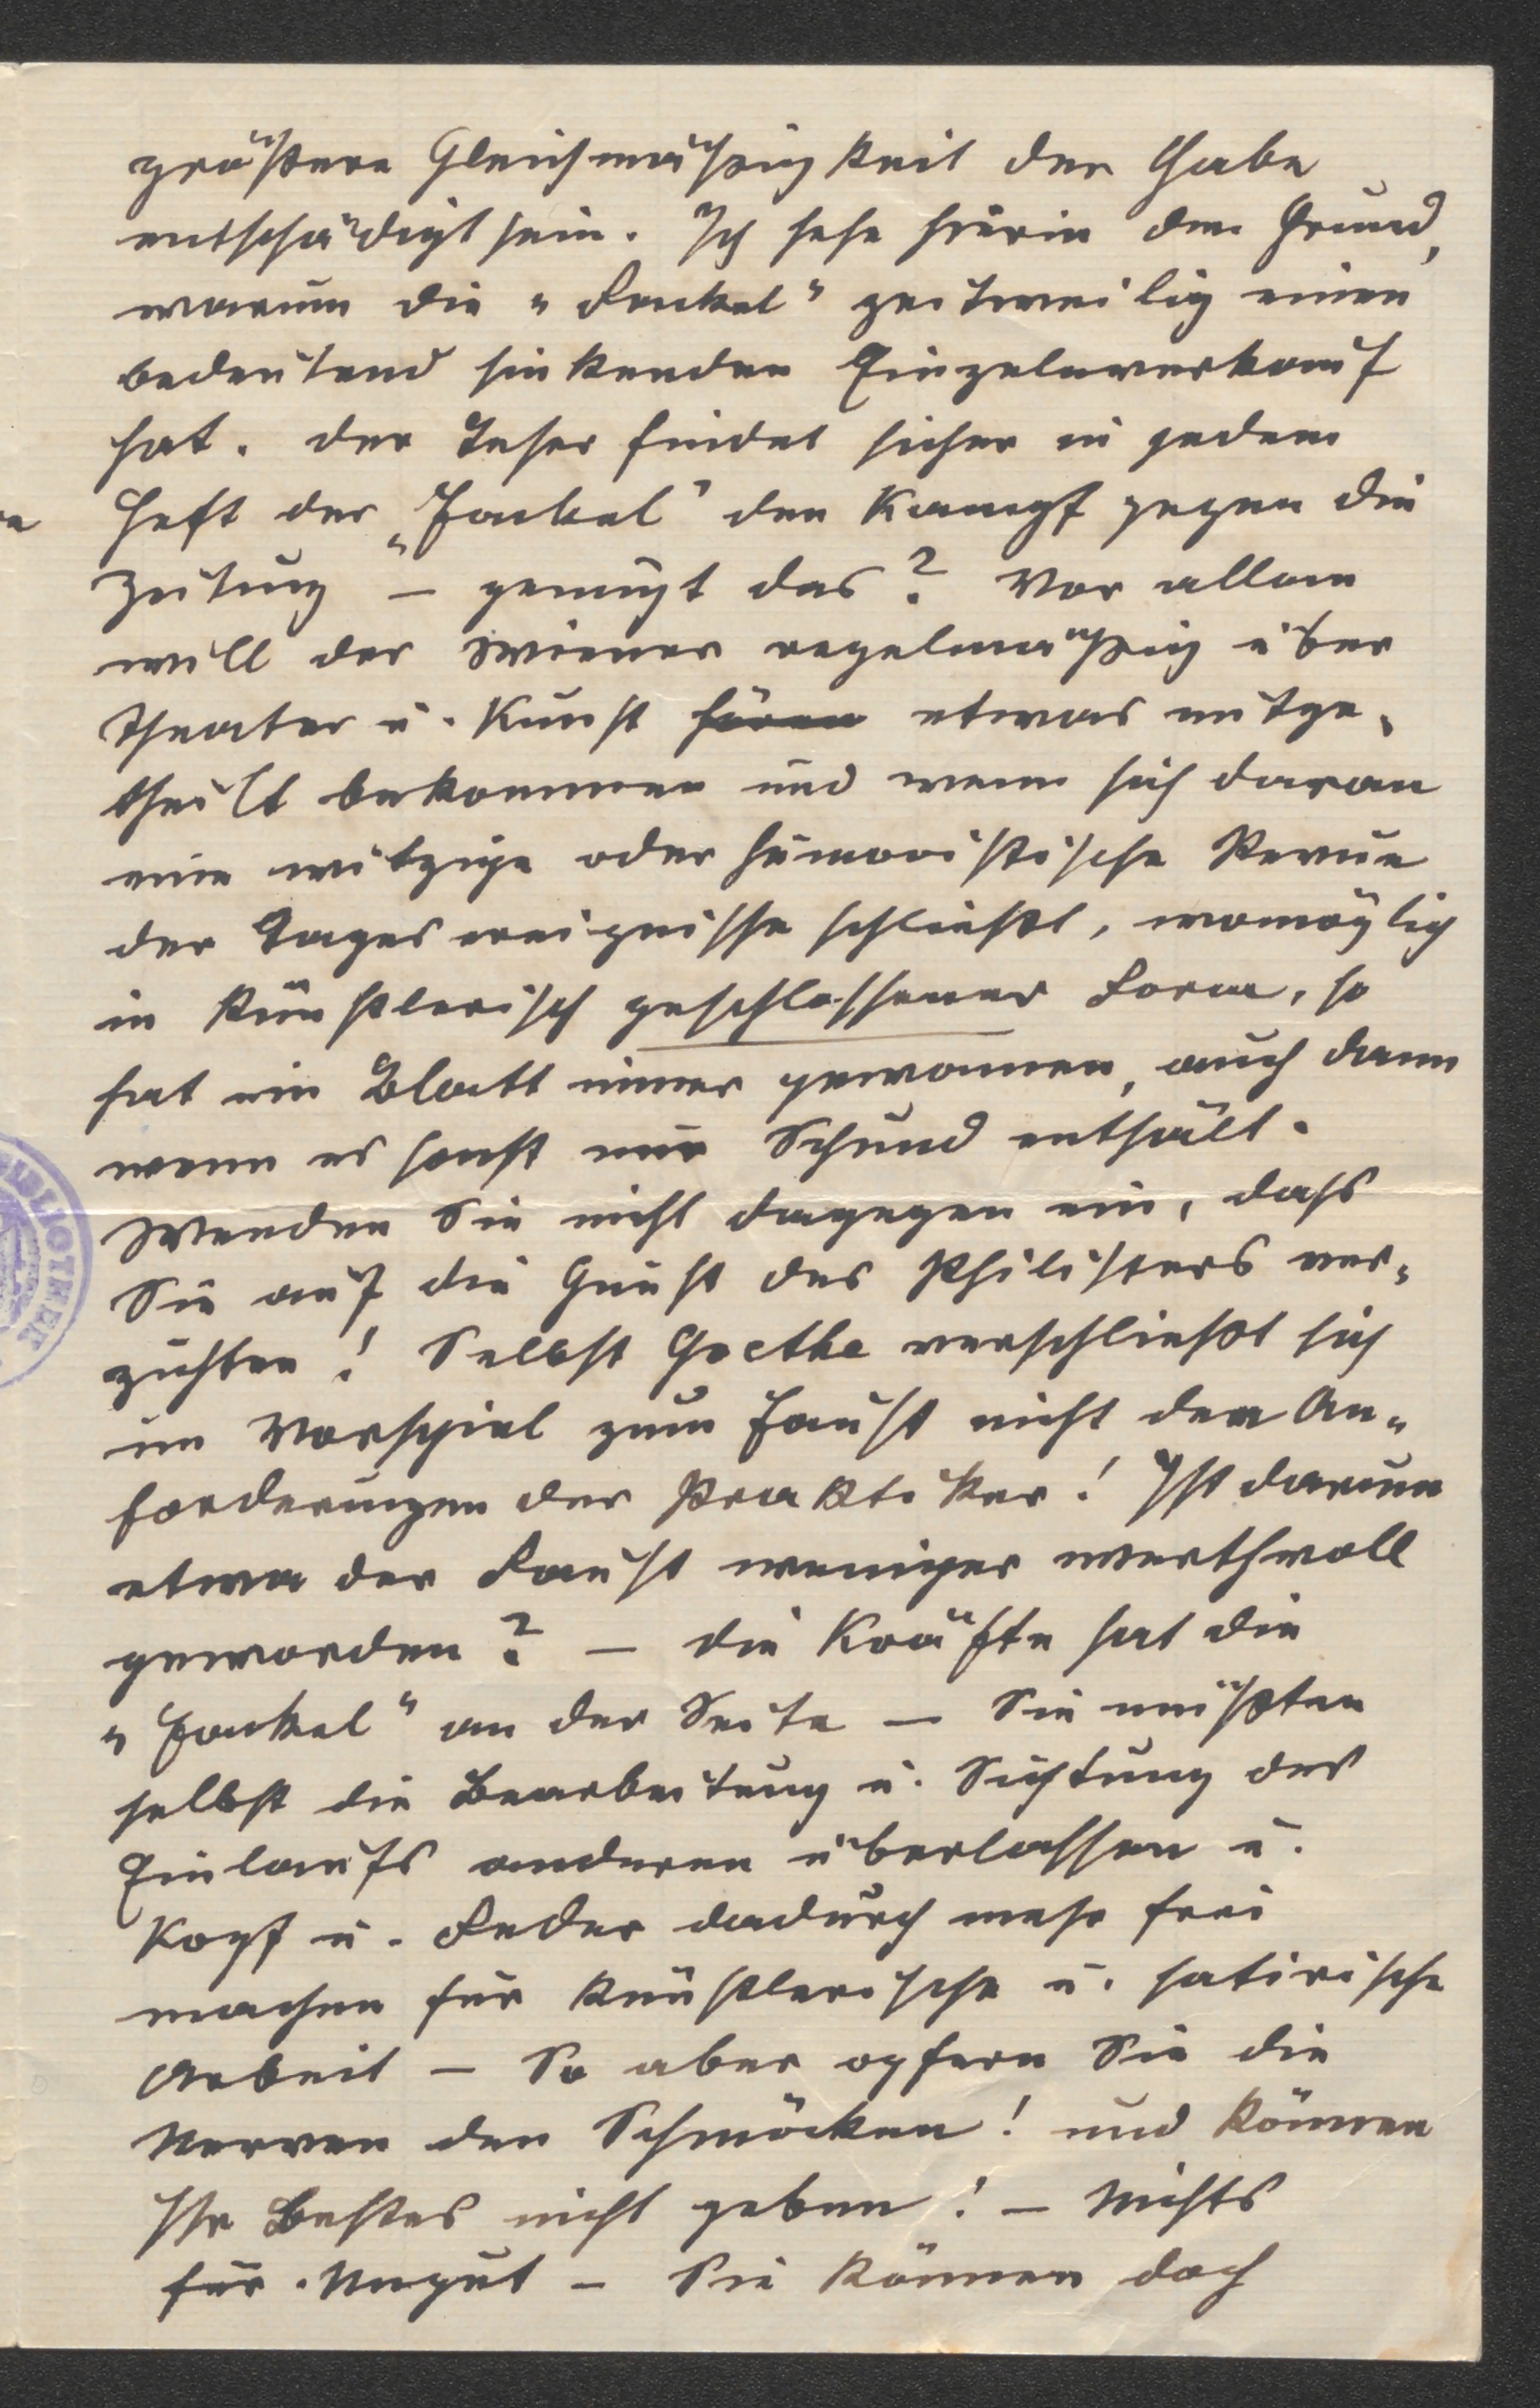 größere Gleichmäßigkeit der Gabe
entschädigt sein. Ich sehe hierin den Grund,
warum die „Fackel“ zeitweilig einen
bedeutend sinkenden Einzelnverkauf
hat. Der Leser findet sicher in jedem
Heft der „Fackel“ den Kampf gegen die
Zeitung – genügt das? Vor allem
will der Wiener regelmäßig über
Theater u. Kunst hören etwas mitge-
theilt bekommen und wenn sich daran
eine witzige oder humoristische Revue
der Tagesereignisse schließt, womöglich
in künstlerisch geschlossener Form, so
hat ein Blatt immer gewonnen, auch dann
wenn es sonst nur Schund enthält.
Wenden Sie nicht dagegen ein, dass
Sie auf die Gunst des Philisters ver-
zichten! Selbst Goethe verschließt sich
im Vorspiel zum Faust nicht den An-
forderungen der Praktiker! Ist darum
etwa der Faust weniger werthvoll
geworden? – Die Kräfte hat die
„Fackel“ an der Seite – Sie müßten
selbst die Bearbeitung u. Sichtung des
Einlaufs anderen überlassen u.
Kopf u. Feder dadurch mehr frei
machen für künstlerische u. satirische
Arbeit – So aber opfern Sie die
Nerven den Schmöcken! und können
Ihr Bestes nicht geben! – Nichts
für Ungut – Sie können doch
BIBLIOTHEK